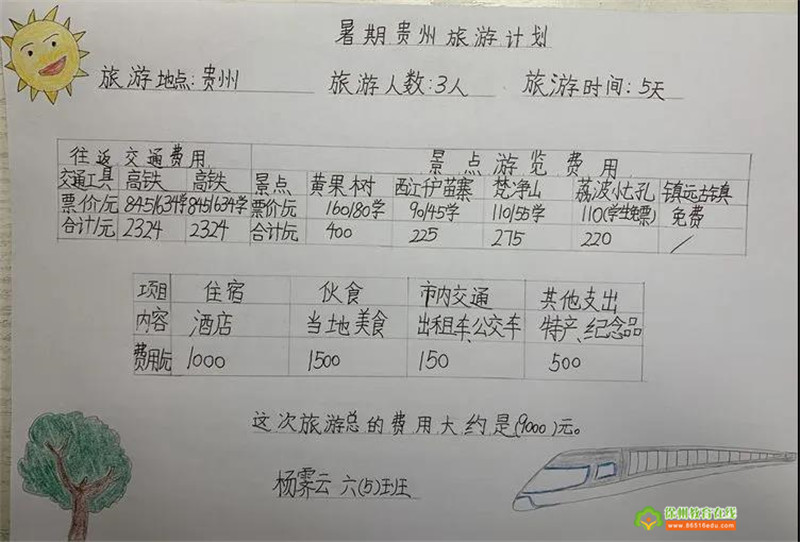 暑期贵州旅游计划
旅游地点:贵州 旅游人数:3人 旅游时间:5天
往返交通费用 景点游览费用
交通工具 高铁 高铁 景点 黄果树 西江千户苗寨 梵净山 荔波小七孔 镇远古镇
票价/元 845/634学 845/634学 票价/元 160/80学 90/45学 110/55学 110(学生免票) 免费
合计/元 2324 2324 合计/元 400 225 275 220 /
项目 住宿 伙食 市内交通 其他支出
内容 酒店 当地美食 出租车、公交车 特产、纪念品
费用/元 1000 1500 150 500
这次旅游总的费用大约是(9000)元。
杨霁云 六(5)班
徐州教育在线
www.86516edu.com